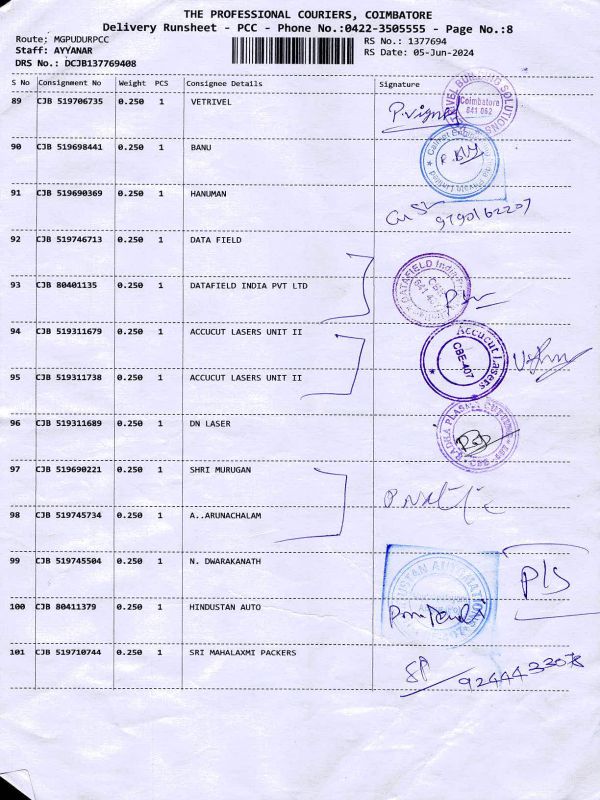 THE PROFESSIONAL COURIERS, COIMBATORE
Delivery Runsheet - PCC - Phone No.:0422-3505555 - Page No.:8
Route; MGPUDURPCC
RS No.: 1377694
Staff: AYYANAR
RS Date: 05-Jun-2024
DRS No.: DCJB137769408
S No Consignment No Weight PCS Consignee Details Signature
89 CJB 519706735 0.250 1 VETRIVEL
Coimbatore
641 062
SOLUTIONS
90 CJB 519698441 0.250 1 BANU
91 CJB 519690369 0.250 1 HANUMAN
9790162207
92 CJB 519746713 0.250 1 DATA FIELD
93 CJB 80401135 0.250 1 DATAFIELD INDIA PVT LTD
DATAFIELD India
94 CJB 519311679 0.250 1 ACCUCUT LASERS UNIT II
Accucut Lasers
CBE-407
95 CJB 519311738 0.250 1 ACCUCUT LASERS UNIT II
96 CJB 519311689 0.250 1 DN LASER
PLASMA
97 CJB 519690221 0.250 1 SHRI MURUGAN
98 CJB 519745734 0.250 1 A..ARUNACHALAM
99 CJB 519745504 0.250 1 N. DWARAKANATH
P/S
100 CJB 80411379 0.250 1 HINDUSTAN AUTO
101 CJB 519710744 0.250 1 SRI MAHALAXMI PACKERS